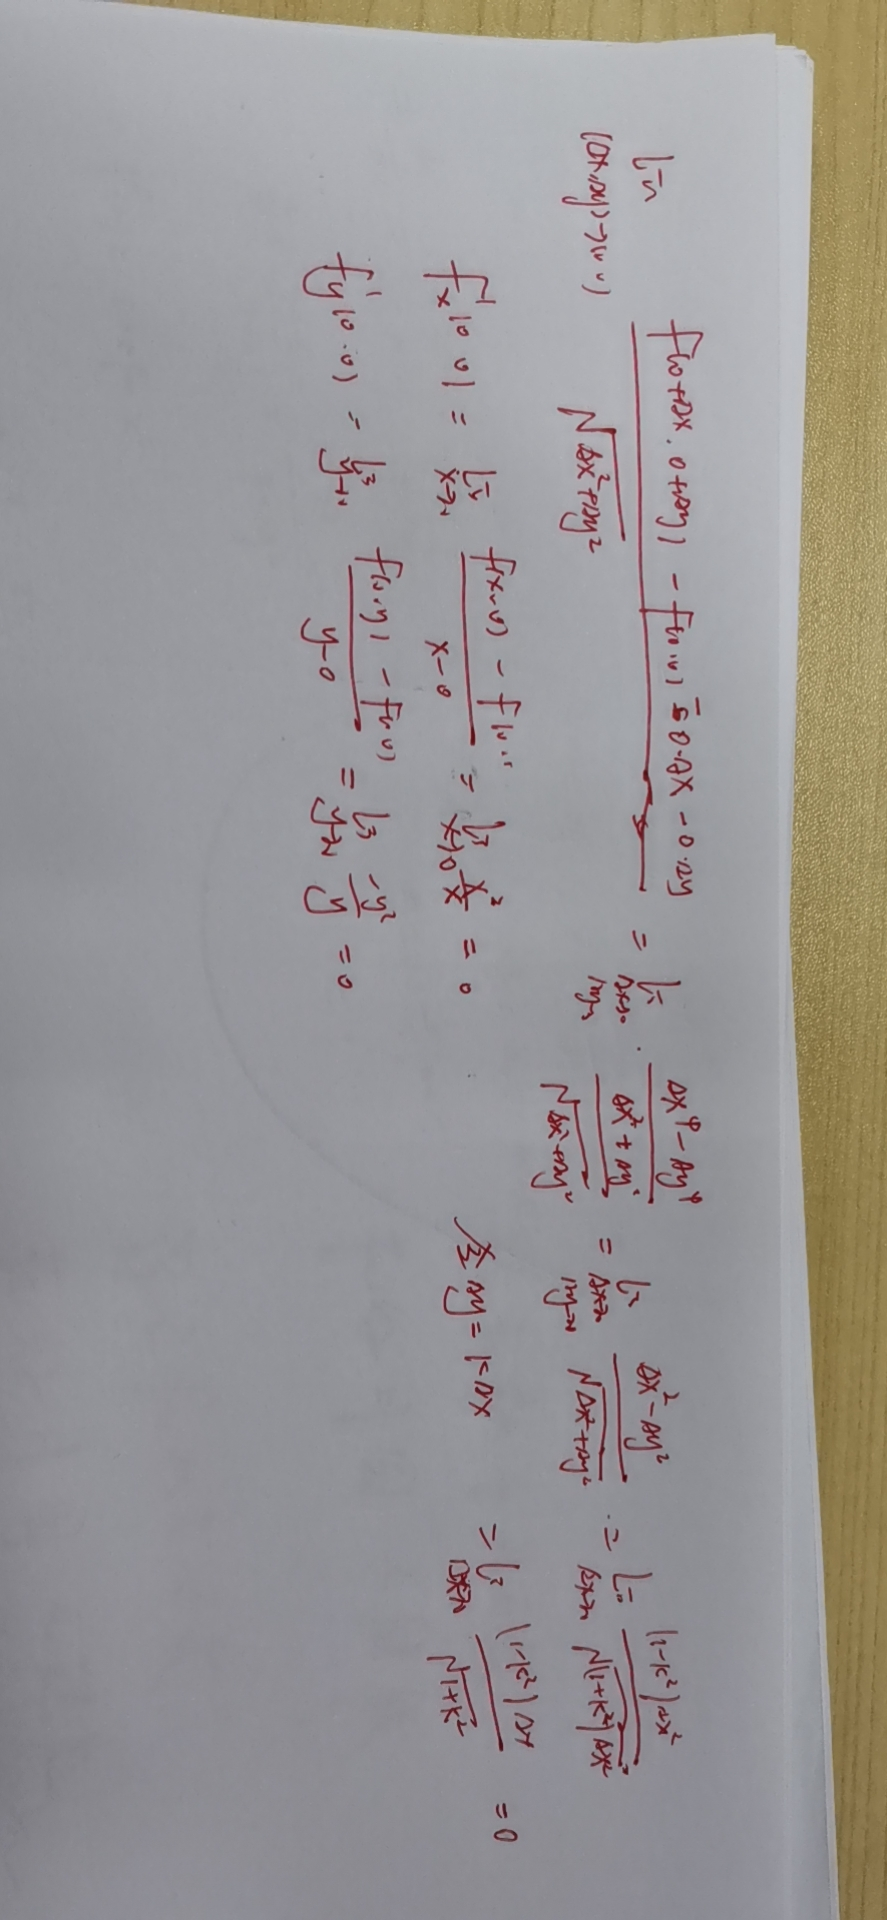 lim (Δx,Δy)→(0,0) [f(0+Δx, 0+Δy) - f(0,0) - 0·Δx - 0·Δy] / √(Δx²+Δy²) = lim Δx→0 Δy→0 [(Δx⁴-Δy⁴)/(Δx²+Δy²)] / √(Δx²+Δy²) = lim Δx→0 Δy→0 (Δx²-Δy²)/√(Δx²+Δy²) = lim Δx→0 (1-k²)Δx²/√((1+k²)Δx²)
f'x(0,0) = lim x→0 [f(x,0) - f(0,0)]/(x-0) = lim x→0 x²/x = 0
令 Δy = kΔx
= lim Δx→0 (1-k²)Δx/√(1+k²) = 0
f'y(0,0) = lim y→0 [f(0,y) - f(0,0)]/(y-0) = lim y→0 -y²/y = 0